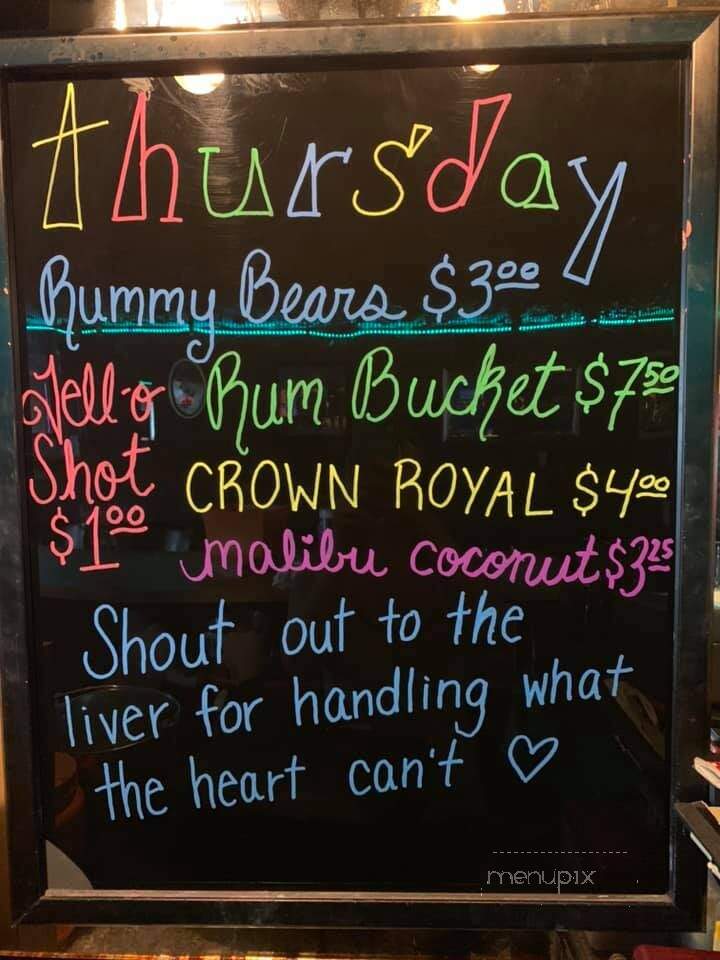 thursday
Rummy Bears $3.00
Jell-o
Shot
$1.00
Rum Bucket $7.50
CROWN ROYAL $4.00
malibu coconut $3.25
Shout out to the
liver for handling what
the heart can't ♡
menupix